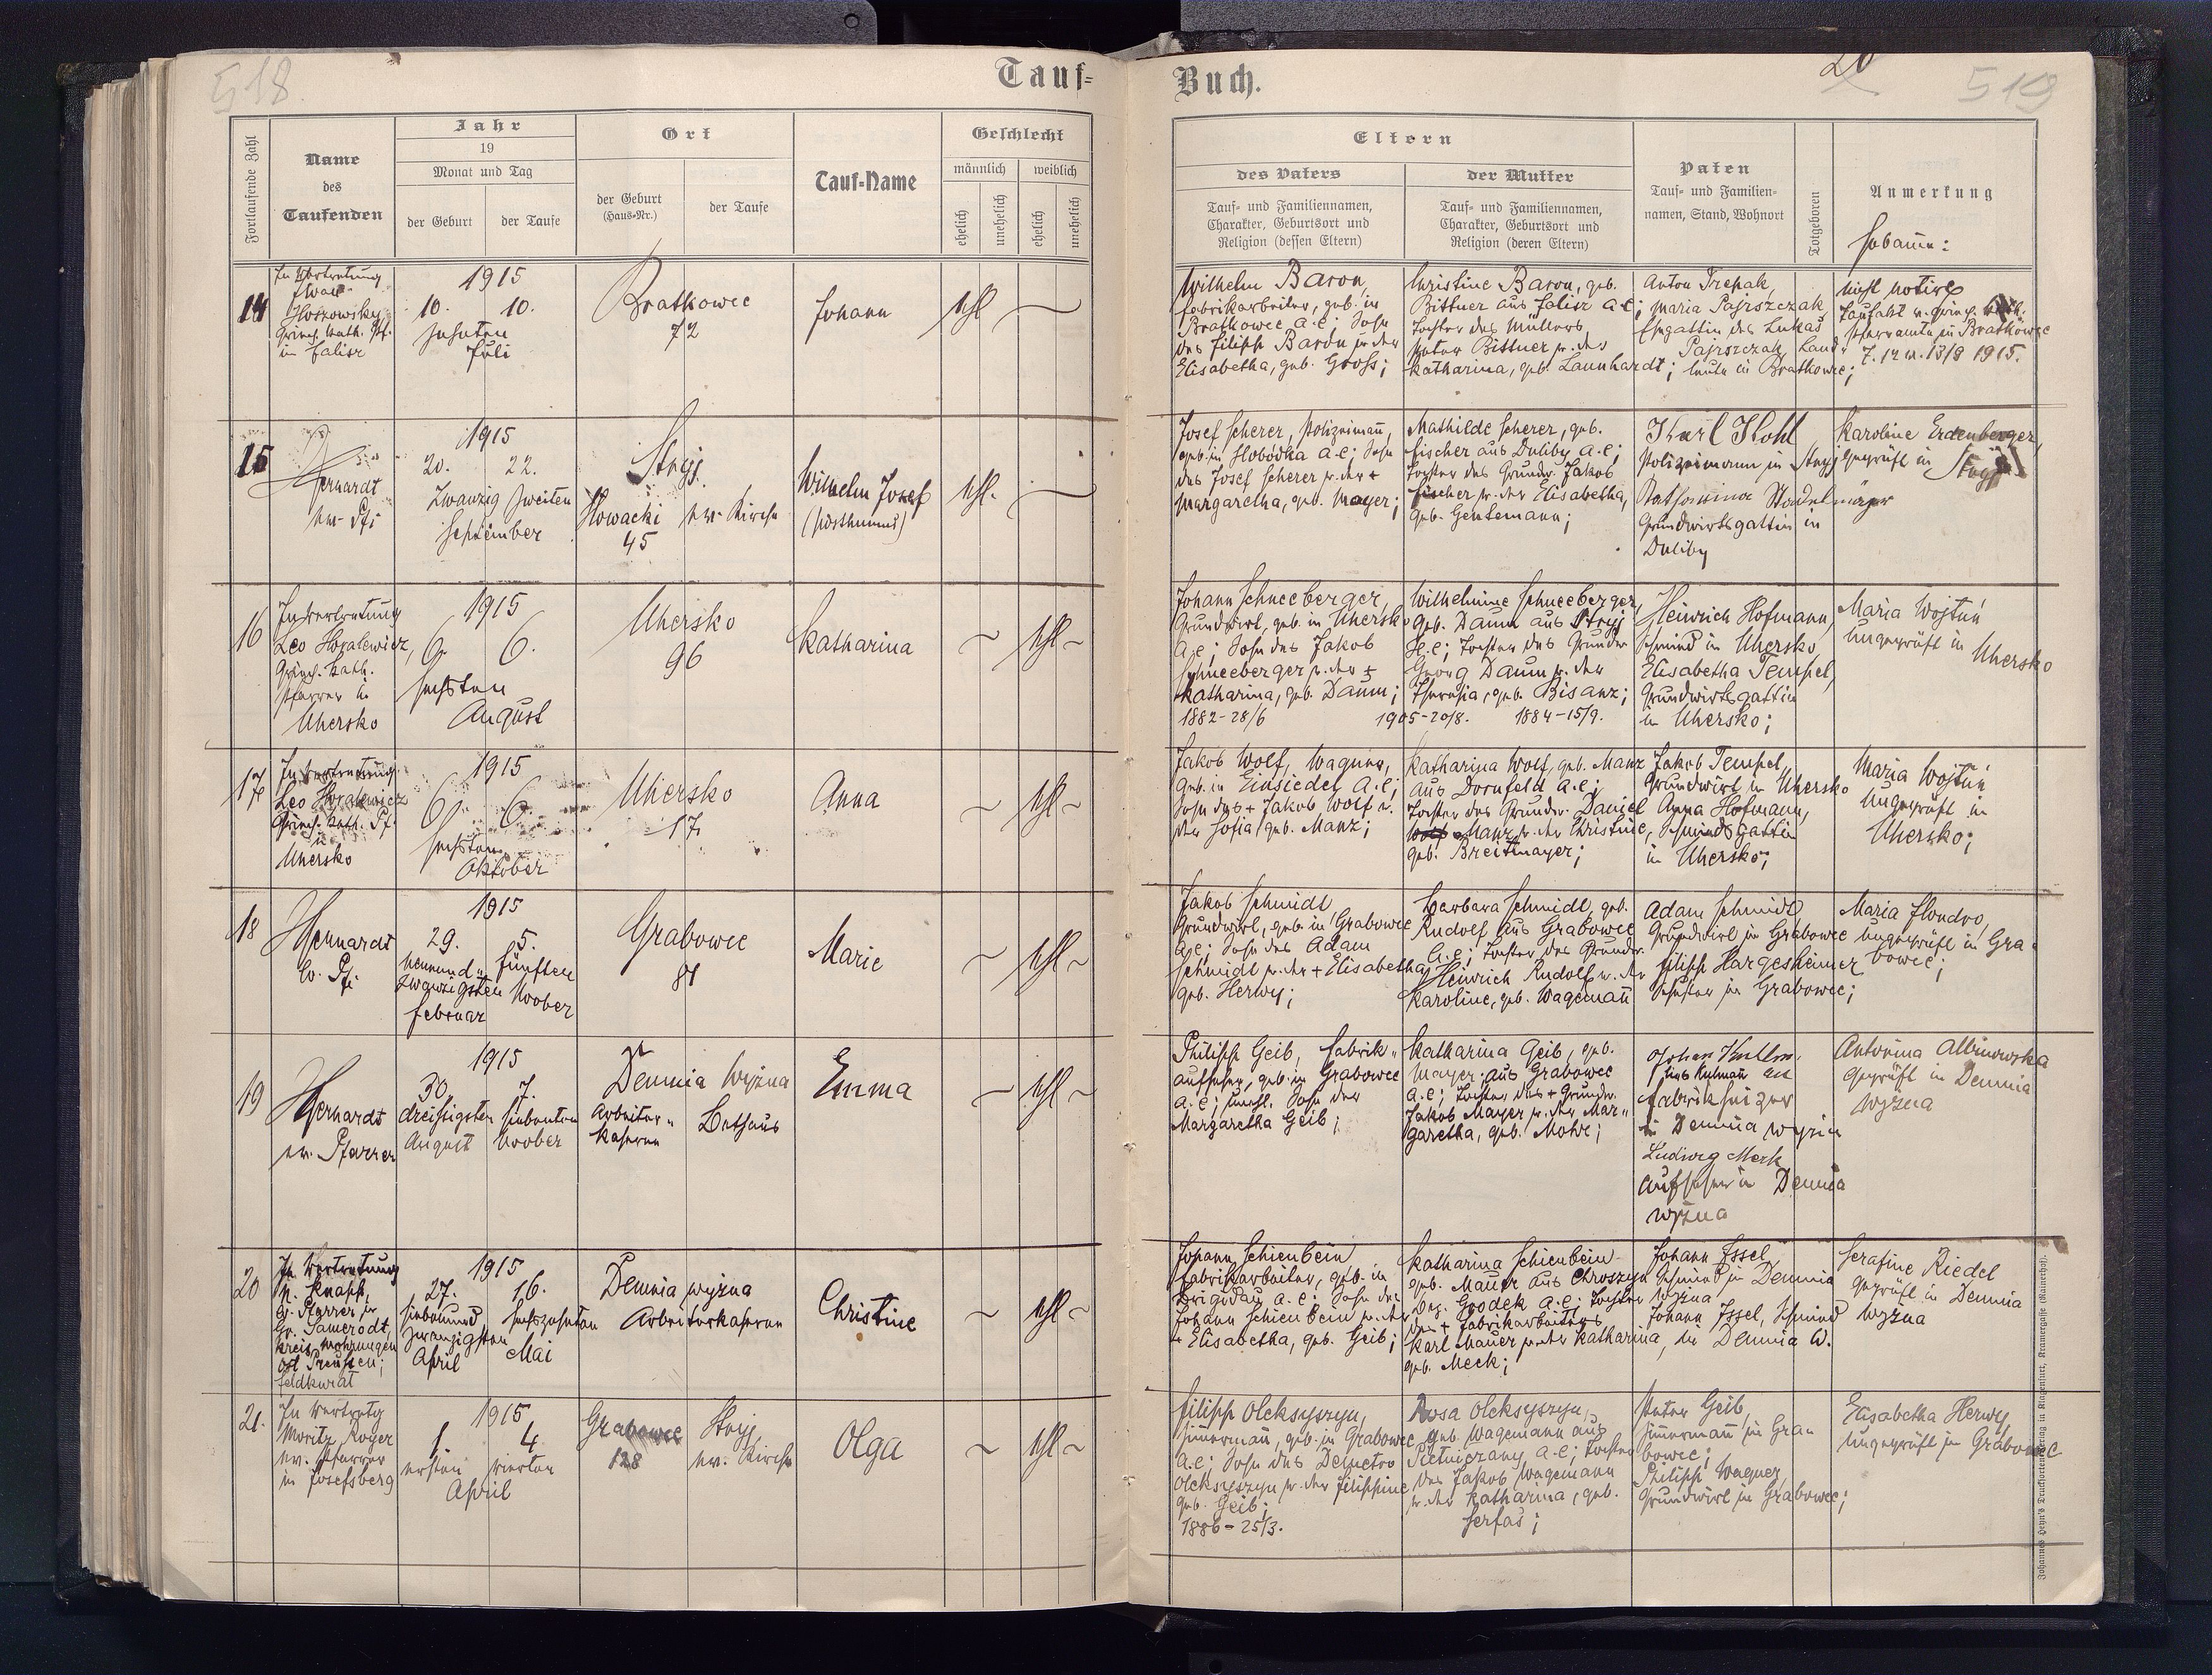 518
Tauf=
Fortlaufende Zahl
Name
des
Taufenden
Jahr
19
Monat und Tag
der Geburt
der Taufe
Ort
der Geburt
(Haus=Nr.)
der Taufe
Tauf=Name
Geschlecht
männlich
weiblich
ehelich
unehelich
ehelich
unehelich
14
In Vertretung
Iwan
Hoszowsky
Griech. kath. Pf.
in Zalisz
1915
10. 10.
zehnten
Juli
Bratkowce
72
Johann
ehl.
15
Gerhardt
ev. Pf.
1915
20. 22.
Zwanzig zweiten
September
Stryj
Slowacki
45
ev. Kirche
Wilhelm Josef
(posthumus)
ehl.
16
In Vertretung
Leo
Griech. kath.
Pfarrer in
Uhersko
1915
6. 6.
sechsten
August
Uhersko
96
Katharina
ehl.
17
In Vertretung
Leo
Griech. kath. Pf.
in
Uhersko
1915
6. 6.
sechsten
Oktober
Uhersko
17
Anna
ehl.
18
Gerhardt
Ev. Pf.
1915
29. 5.
neunund= fünften
zwanzigsten
Februar
Grabowce
Marie
ehl.
19
Gerhardt
ev. Pfarrer
1915
30. 7.
dreißigsten siebenten
August
Demnia wyżna
Arbeiter=
kaserne
Bethaus
Emma
ehl.
20
In Vertretung
Knapp,
Ev. Pfarrer in
Gr. Samrodt,
Kreis Mohrungen
Ost Preußen;
Feldkurat
1915
27. 16.
siebenund sechszehnten
zwanzigsten
April Mai
Demnia wyżna
Arbeiterkaserne
Christine
ehl.
21.
In Vertretg
Moritz Royer
ev. Pfarrer
in Josefsberg
1915
1. 4
ersten vierten
April
Grabowce
128
Stryj,
ev. Kirche
Olga
ehl.
Buch.
20
519
Eltern
des Vaters
Tauf= und Familiennamen,
Charakter, Geburtsort und
Religion (dessen Eltern)
der Mutter
Tauf= und Familiennamen,
Charakter, Geburtsort und
Religion (deren Eltern)
Paten
Tauf= und Familien=
namen, Stand, Wohnort
Totgeboren
Anmerkung
Hebamme:
Wilhelm Baron,
Fabrikarbeiter, geb. in
Bratkowce A.C; Sohn
des Filipp Baron u. der
Elisabetha, geb. Gross;
Christine Baron, geb.
Bittner aus Zalisz A.C;
Tochter des Müllers
Peter Bittner u. der
Katharina, geb. Launhardt;
Anton Trepak,
Maria Pajrszczak
Ehgattin des Lukas
Pajrszczak, Land=
leute in Bratkowce;
nicht notirt
Taufakt v. griech. kath.
Pfarramte in Bratkowce
Z. 12 v. 13/8 1915.
Josef Scherer, Polizeimann,
geb. in Slobodka A.C; Sohn
des Josef Scherer u. der +
Margaretha, geb. Mayer;
Mathilde Scherer, geb.
Fischer aus Duliby A.C;
Tochter des Grundw. Jakob
Fischer u. der Elisabetha,
geb. Gensemann;
Karl Kohl
Polizeimann in Stryj
Katharina Stadelmayer
Grundwirtsgattin in
Duliby
Karoline Erdenberger,
geprüft in Stryj
Johann Schneeberger,
Grundwirt, geb. in Uhersko
A.C; Sohn des Jakob
Schneeberger u. der +
Katharina, geb. Daum;
1882-28/6 1905-20/8.
Wilhelmine Schneeberger,
geb. Daum aus Stryj
H.C; Tochter des Grundw.
Georg Daum u. der
Theresia, geb. Bisanz;
1884-15/9.
Heinrich Hofmann,
Schmied in Uhersko,
Elisabetha Tempel,
Grundwirtsgattin
in Uhersko;
Maria Wojtuń
Ungeprüft in Uhersko
Jakob Wolf, Wagner,
geb. in Einsiedel A.C;
Sohn des + Jakob Wolf u.
der Sofia, geb. Manz;
Katharina Wolf, geb. Manz
aus Dornfeld A.C;
Tochter des Grundw. Daniel
Manz u. der Christine,
geb. Breitmayer;
Jakob Tempel,
Grundwirt in Uhersko
Anna Hofmann,
Schmiedsgattin
in Uhersko;
Maria Wojtuń
Ungeprüft in
Uhersko;
Jakob Schmidt
Grundwirt, geb. in Grabowce
A.C; Sohn des Adam
Schmidt u. der + Elisabetha,
geb. Herwy;
Barbara Schmidt, geb.
Rudolf aus Grabowce
A.C; Tochter des Grundw.
Heinrich Rudolf u. der
Karoline, geb. Wagemann
Adam Schmidt,
Grundwirt in Grabowce
Filipp Hargesheimer
Schuster in Grabowce;
Maria
Ungeprüft in Gra=
bowce;
Philipp Geib, Fabrik=
aufseher, geb. in Grabowce
A.C; unehl. Sohn der
Margaretha Geib;
Katharina Geib, geb.
Mayer; aus Grabowce
A.C; Tochter des + Grundw.
Jakob Mayer u. der Mar=
garetha, geb. Mohr;
Fabrikheizer
in Demnia wyżna
Ludwig Merk
Aufseher in Demnia
wyżna
Antonina Albinowska
geprüft in Demnia
wyżna
Johann Schienbein
Fabrikarbeiter, geb. in
Brigidau A.C; Sohn des
Johann Schienbein u. der
+ Elisabetha, geb. Geib;
Katharina Schienbein
geb. Mauer aus
Bez. Grodek A.C; Tochter
des + Fabrikarbeiters
Karl Mauer u. der Katharina,
geb. Meck;
Johann Issel,
Schmied in Demnia
wyżna
Johann Issel, Schmied
in Demnia W.
Serafine Riedel
geprüft in Demnia
wyżna
Filipp Oleksyszyn,
Zimmermann, geb. in Grabowce
A.C; Sohn des Demetro
Oleksyszyn u. der Filippine
geb. Geib;
1886-25/3.
Rosa Oleksyszyn,
geb. Wagemann aus
Pietniczany A.C; Tochter
des Jakob Wagemann
u. der Katharina, geb.
Serfas;
Peter Geib,
Zimmermann in Gra=
bowce;
Philipp Wagner,
Grundwirt in Grabowce;
Elisabetha Herwy,
Ungeprüft in Grabowce
Johannes Heyn's Druckfortenverlag in Klagenfurt, Kramergasse (Rainerhof).